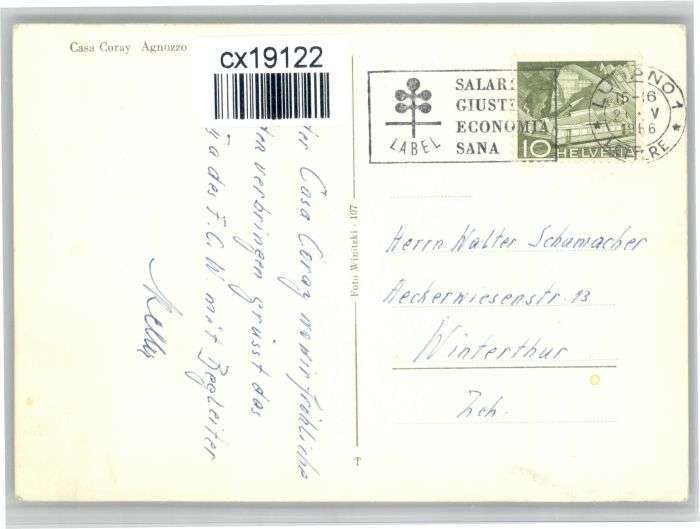 Casa Coray Agnozzo
cx19122
SALAR
GIUSTE
ECONOMIA
SANA
LABEL
LUGANO 1
15-16
V
1956
10 HELVETIA
Casa Coray wo wir fröhliche
verbringen grüsst das
des F.C.W mit Begleiter
Foto Winizki · 107
Herrn Walter Schumacher
Aeckerwiesenstr. 13
Winterthur
Zch.